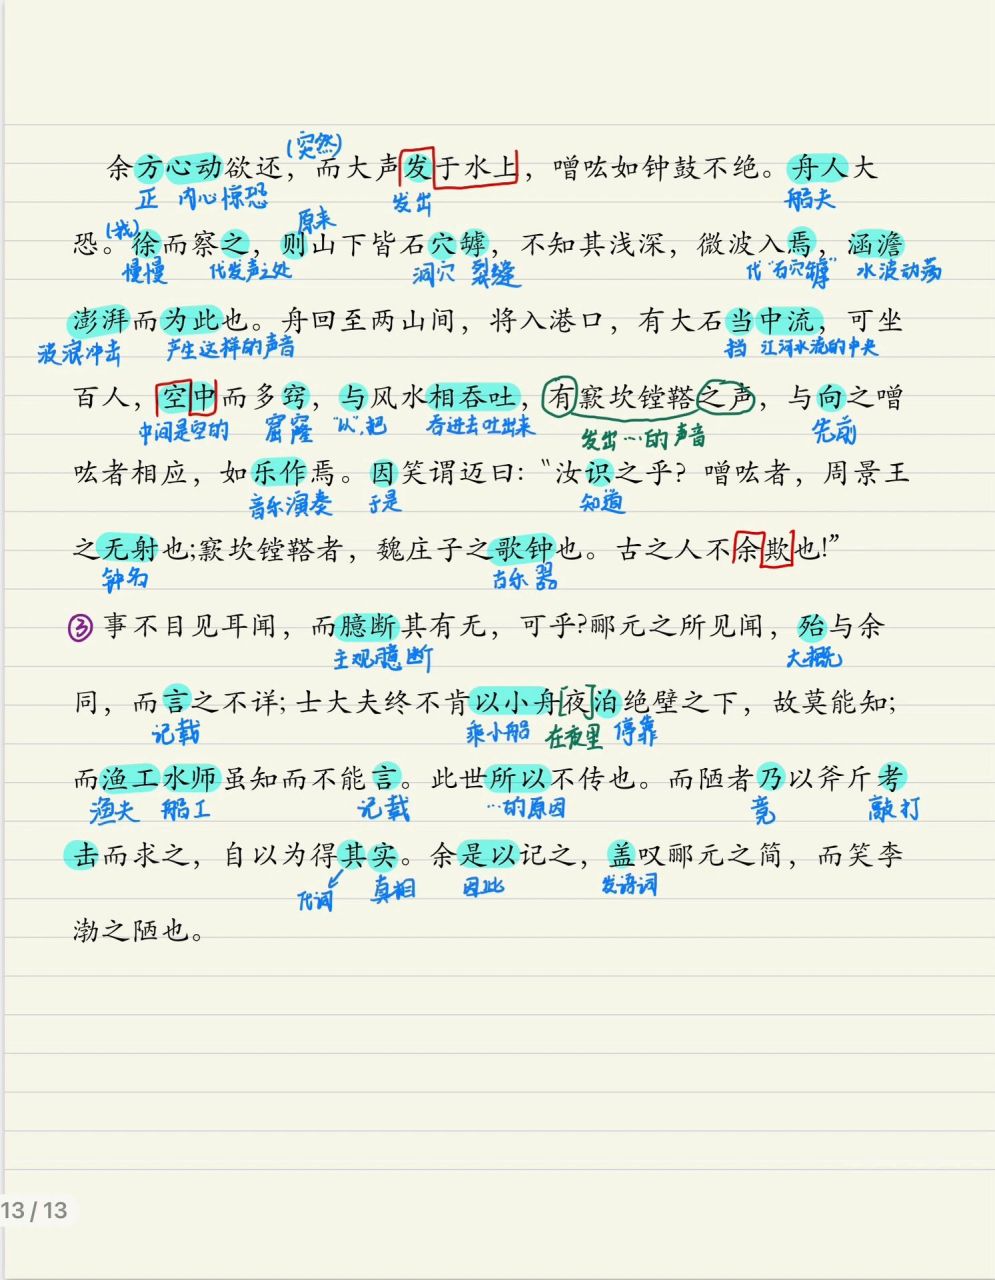 (突然)
余方心动欲还，而大声发于水上，噌吰如钟鼓不绝。舟人大
正 内心惊恐 发出 船夫
(我) 原来
恐。徐而察之，则山下皆石穴罅，不知其浅深，微波入焉，涵澹
慢慢 代发声之处 洞穴 裂缝 代"石穴罅" 水波动荡
澎湃而为此也。舟回至两山间，将入港口，有大石当中流，可坐
波浪冲击 产生这样的声音 挡 江河水流的中央
百人，空中而多窍，与风水相吞吐，有窾坎镗鞳之声，与向之噌
中间是空的 窟窿 "以",把 吞进去吐出来 发出…的声音 先前
吰者相应，如乐作焉。因笑谓迈曰：“汝识之乎？噌吰者，周景王
音乐演奏 于是 知道
之无射也;窾坎镗鞳者，魏庄子之歌钟也。古之人不余欺也!”
钟名 古乐器
③ 事不目见耳闻，而臆断其有无，可乎?郦元之所见闻，殆与余
主观臆断 大概
同，而言之不详; 士大夫终不肯以小舟[夜]泊绝壁之下，故莫能知;
记载 乘小船 在夜里 停靠
而渔工水师虽知而不能言。此世所以不传也。而陋者乃以斧斤考
渔夫 船工 记载 …的原因 竟 敲打
击而求之，自以为得其实。余是以记之，盖叹郦元之简，而笑李
代词 真相 因此 发语词
渤之陋也。
13 / 13